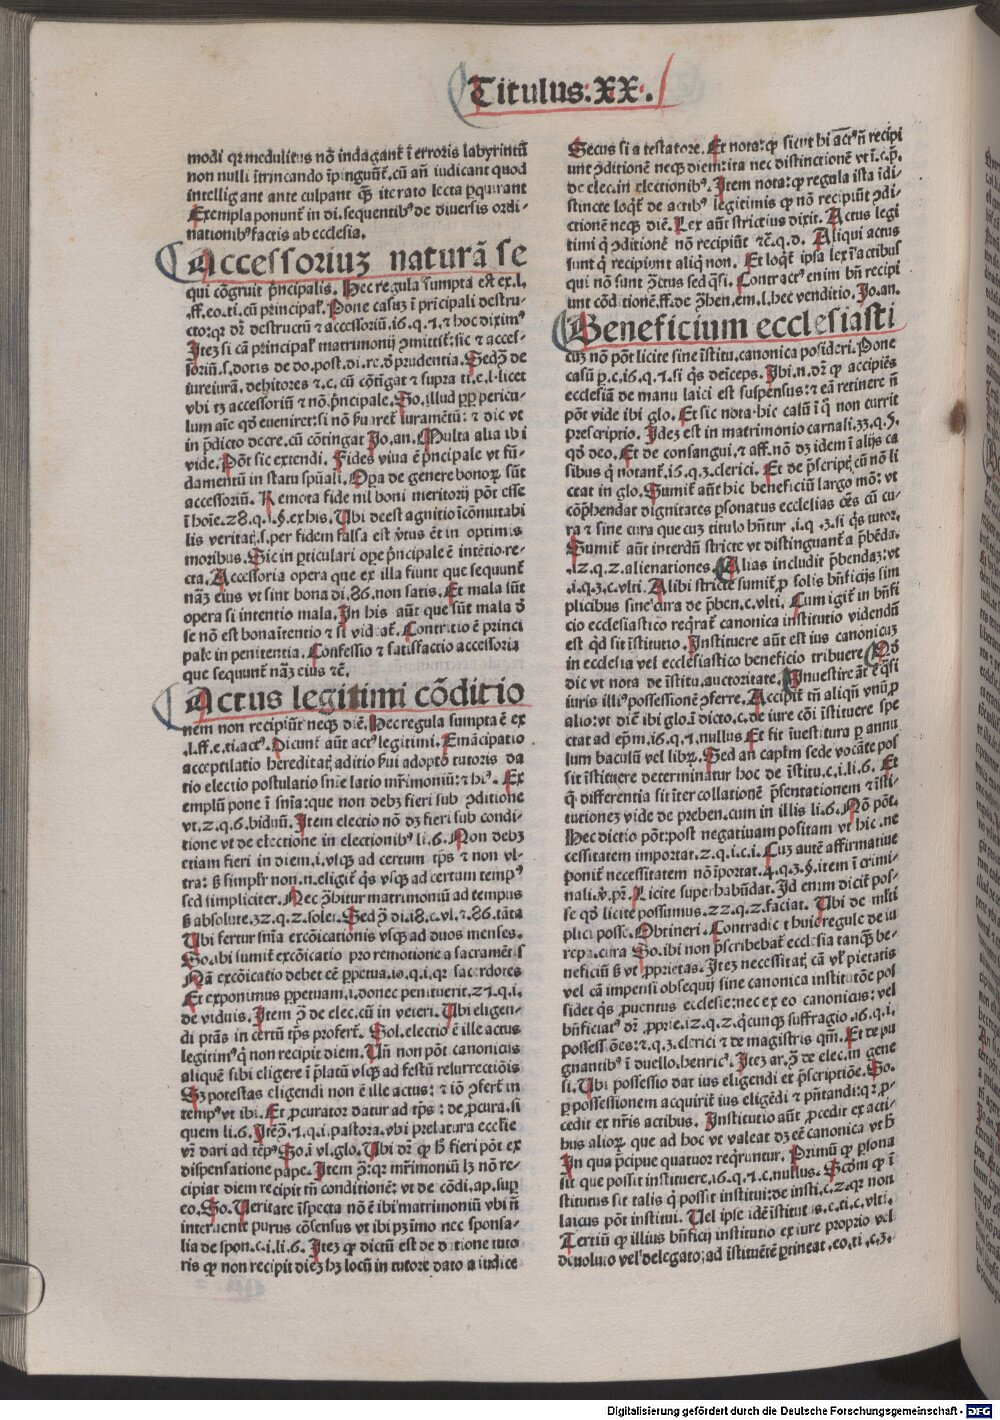 Titulus.XX.
modi qr medulitus nō indagant᷑ ī erroris labyrintū
non nulli ītrincando īpingunt᷑.cū añ iudicant quod
intelligant ante culpant q̄ꝫ iterato lecta ꝑquirant
Exempla ponunt᷑ in di.sequentibꝰ de diuersis ordi-
nationibꝰ factis ab ecclesia.
Accessoriuꝫ naturā se
qui cōgruit p̄ncipalis. Hec regula sumpta est ex.l.
.ff.eo.ti.cū principal᷑. Pone casuꝫ ī prīcipali destru-
cto:qꝛ dꝛ destructū ⁊ accessoriū.16.q.1.⁊ hoc diximꝰ
Iteꝫ si cā principal᷑ matrimonij ꝯmittit᷑:sic ⁊ acces-
soriū.s.dotis de do.post.di.re.ð prudentia. Sedꝯ̄ de
iureiurā.debitores ⁊.c.cū cōtingat ⁊ supra ti.e.l.licet
vbi tꝫ accessoriū ⁊ nō p̄ncipale. So.illud ꝓpꝑ pericu-
lum aīe qð eueniret:si nō ẜuaret᷑ iuramētū: ⁊ dic vt
in p̄dicto decre.cū cōtingat Jo.an. Multa alia ibi
vide. Pōt sic extendi. Fides viua ē p̄ncipale vt fū-
damentū in statu spūali. Opa de genere bonoꝝ sūt
accessoriū. Remota fide nil boni meritorij pōt esse
ī hoīe.28.q.1.§.ex his. Ubi deest agnitio īcōmutabi
lis veritat᷑.s.per fidem falsa est v̄tus ēt in optimis
moribus. Sic in ꝑticulari ope p̄ncipale ē intētio.re-
cta. Accessoria opera que ex illa fiunt que sequunt᷑
nāꝫ eius vt sint bona di.86.non satis. Et mala sūt
opera si intentio mala. In his aūt que sūt mala ð
se nō est bona ītentio ⁊ si videat᷑. Contritio ē princi
pale in penitentia. Confessio ⁊ satisfactio accessoria
que sequunt᷑ nāꝫ eius ⁊c̄.
Actus legitimi cōditio
nem non recipiūt neqꝫ diē. Hec regula sumpta ē ex
.l.ff.e.ti.actꝰ. Dicunt᷑ aūt actꝰ legitimi. Emācipatio
acceptilatio hereditat᷑ aditio ẜui adoptō tutoris da
tio electio postulatio snīe latio mr̄imoniū: ⁊ hiꝰ. Ex
emplū pone ī snīa:que non debꝫ fieri sub ꝯditione
vt.2.q.6.biduū. Item electio nō dꝫ fieri sub condi-
tione vt de electione in electionibꝰ li.6. Non debꝫ
etiam fieri in diem.i.vsqꝫ ad certum tp̄s ⁊ non vl-
tra: ẜ simplr̄ non.n.eligit᷑ q̄s vsqꝫ ad certum tempꝰ
sed simpliciter. Nec ꝯ̄hitur matrimoniū ad tempus
ẜ absolute.32.q.2.solet. Sed ꝯ̄ di.18.c.vl.⁊.86.tāta
Ubi fertur snīa excōicationis vsqꝫ ad duos menses.
So.ibi sumit᷑ excōicatio pro remotione a sacramētis
Nā excōicatio debet eē ꝑpetua.is.q.i.qꝛ sacerdotes
Et exponimus ꝑpetuam.i.donec penituerit.27.q.i.
de viduis. Item ꝯ̄ de elec.cū in veteri. Ubi eligen-
di ptās in certū tp̄s profert᷑. Sol.electio ē ille actus
legitimꝰ q̄ non recipit diem. Uñ non pōt canonicus
aliquē sibi eligere ī p̄latū vsqꝫ ad festū resurrectiōis
Sꝫ potestas eligendi non ē ille actus: ⁊ iō ꝯfert᷑ in
tempꝰ vt ibi. Et ꝓcurator datur ad tp̄s : de ꝓcura.si
quem li.6. Itēꝯ̄.1.q.i.pastora.vbi prelatura eccl̄ie
vr̄ dari ad tēpꝰ So.ī vl.glo. Ubi dꝛ ꝙ ħ fieri pōt ex
dispensatione pape. Item ꝯ̄:qꝛ mr̄imoniū lꝫ nō re-
cipiat diem recipit tñ conditionē: vt de cōdi.ap.suꝑ
eo. So. Ueritate īspecta nō ē ibi matrimoniū vbi ñ
interuenit purus cōsensus vt ibi pꝫ īmo nec sponsa-
lia de spon.c.i.li.6. Iteꝫ ꝙ dictū est de datione tuto
ris ꝙ non recipit dieꝫ hꝫ locū in tutore dato a iudice
Secus si a testatore. Et nota: ꝙ sicut hi actꝰ ñ recipi
unt ꝯditionē neqꝫ diem:ita nec distinctionē vt ī.c.p̄.
de elec.in electionibꝰ. Item nota: ꝙ regula ista īdi-
stincte loqt᷑ de actibꝰ legitimis ꝙ nō recipiūt ꝯdi-
ctionē neqꝫ diē. Lex aūt strictius dixit. Actus legi
timi q̄ ꝯditionē nō recipiūt ⁊c̄.q.d. Aliqui actus
sunt q̄ recipiunt aliq̄ non. Et loqt᷑ ipsa lex ī actibus
qui nō sunt ꝯ̄ctus sed q̄si. Contractꝰ enim bñ recipi
unt cōditionē.ff.de ꝯ̄hen.em.l.hec venditio. Jo.an.
Beneficium ecclesiasti
cuꝫ nō pōt licite sine īstitu.canonica posideri. Pone
casū p.c.16.q.1.si q̄s deīceps. Ibi.n.dꝛ ꝙ accipiēs
ecclesiā de manu laici est suspensus: ⁊ eā retinere ñ
pōt vide ibi glo. Et sic nota hic casū ī q̄ non currit
prescriptio. Ideꝫ est in matrimonio carnali.33.q.5.
qð deo. Et de consangui.⁊ aff.nō dꝫ idem ī alijs ca
sibus q̄ notant᷑.16.q.3.clerici. Et de p̄script᷑ cū nō li
ceat in glo. Sumit᷑ aūt hic beneficiū largo mō: vt
cōp̄hendat dignitates ꝑsonatus ecclesias oēs cū cu-
ra ⁊ sine cura que cuꝫ titulo hn̄tur .i.q.3.si q̄s tutor.
Sumit᷑ aūt interdū stricte vt distinguant᷑ a p̄bēda.
.12.q.2.alienationes. Alias includit p̄bendaꝫ:vt
.i.q.3.c.vlti. Alibi stricte sumit᷑ ꝓ solis bn̄ficijs sim
plicibus sine cura de p̄ben.c.vlti. Cum igit᷑ in bn̄fi
cio ecclesiastico reqrat᷑ canonica institutio videndū
est qd sit īstitutio. Instituere aūt est ius canonicuꝫ
in ecclesia vel ecclesiastico beneficio tribuere Qð
dic vt nota de īstitu.auctoritate. Inuestire āt ē q̄si
iuris illiꝰ possessionē ꝯferre. Accipit᷑ tñ aliqn̄ vnū ꝓ
alio: vt diē ibi glo.ī dicto.c.de iure cōi īstituere spe
ctat ad ep̄m.16.q.1.nullus Et fit īuestitura ꝑ annu
lum baculū vel libꝝ. Sed an capl̄m sede vocāte pos
sit īstituere determinatur hoc de īstitu.c.i.li.6. Et
q̄ differentia sit īter collationē p̄sentationem ⁊ īsti-
tutioneꝫ vide de preben.cum in illis li.6. Nō pōt.
Hec dictio pōt:post negatiuam positam vt hic .ne
cessitatem importat.2.q.i.c.i. Cuꝫ autē affirmatiue
ponit᷑ necessitatem nō īportat.4.q.3.§.item ī crimi-
nali.v̄.pꝛ̄. Licite superhabūdat. Id enim dicit᷑ pos-
se qð licite possumus.22.q.2.faciat. Ubi de mlti
plici posse. Obtineri. Contradicit huic regule de iu
repa.cura So.ibi non p̄scribebat᷑ ecclesia tanqꝫ be-
neficiū ẜ vt ꝓprietas. Iteꝫ necessitat᷑ cā vl᷑ pietatis
vel cā impensi obsequij sine canonica institutōe pos
sidet q̄s ꝓuentus ecclesie:nec ex eo canonicus: vel
bn̄ficiatꝰ dꝛ ꝓprie.12.q.2.q̄cunqꝫ suffragio .16.q.i.
possessiōes:⁊.q.3.clerici ⁊ de magistris qm̄. Et de pu
gnantibꝰ ī duello.henricꝰ. Iteꝫ ar.ꝯ̄ de elec.in gene
si. Ubi possessio dat ius eligendi et p̄scriptiōe. So.
ꝑ possessionem acquirit᷑ ius eligēdi ⁊ pn̄tandi:qꝛ ꝓ-
cedit ex nr̄is actibus. Institutio aūt ꝓcedit ex acti-
bus alioꝝ que ad hoc vt valeat dꝫ eē canonica vt ħ
In qua p̄cipue quatuor reqruntur. Primū ꝙ ꝑsona
sit que possit instituere.16.q.1.c.nullus. Scdm̄ ꝙ ī
stitutus sit talis q̄ possit institui:de insti.c.2.qꝛ non
laicus pōt institui. Uel ipse idē īstitut᷑ is.c.ti.c.vlti.
Tertiū ꝙ illius bn̄ficij institutio ex iure proprio vel
deuoluto vel delegato:ad īstituētē ꝑtineat .eo.ti.c.3.
Digitalisierung gefördert durch die Deutsche Forschungsgemeinschaft - DFG